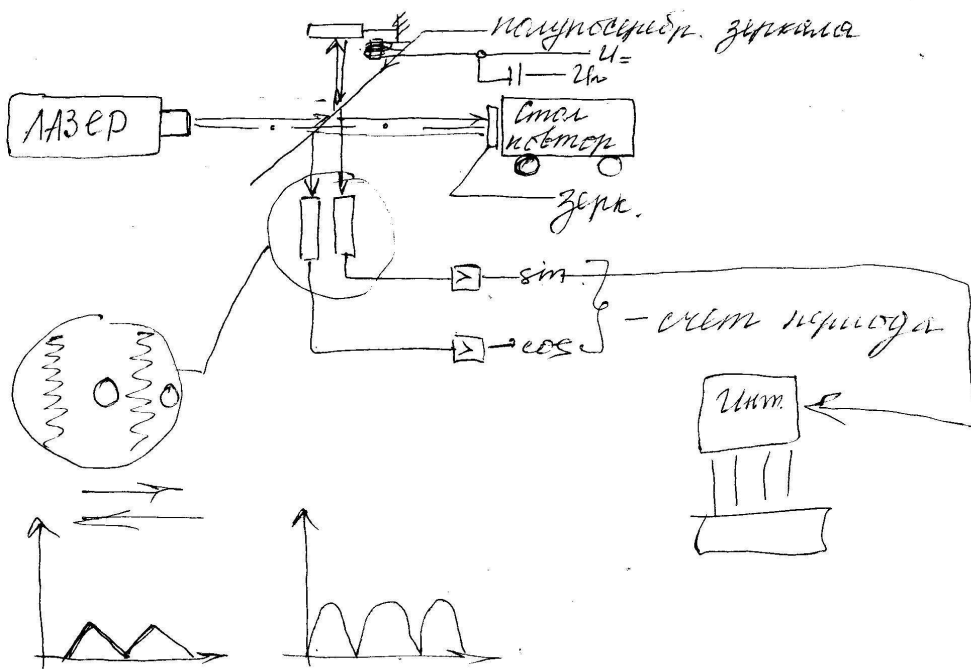 полупосеребр. зеркала
U=
U~
ЛАЗЕР
Стол
повтор
зерк.
sin
cos
- счет периода
Инт.